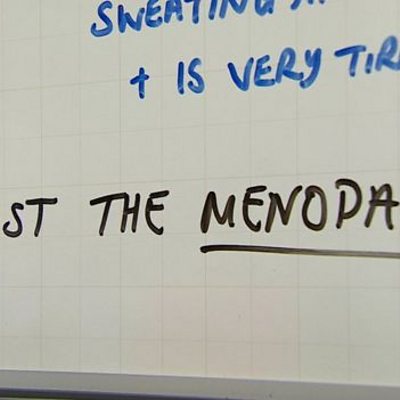 SWEATING A
+ IS VERY TIR
ST THE MENOPA